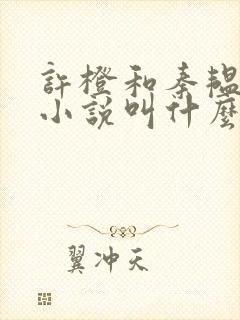 許橙和秦韞
小說叫什麼
翼冲天